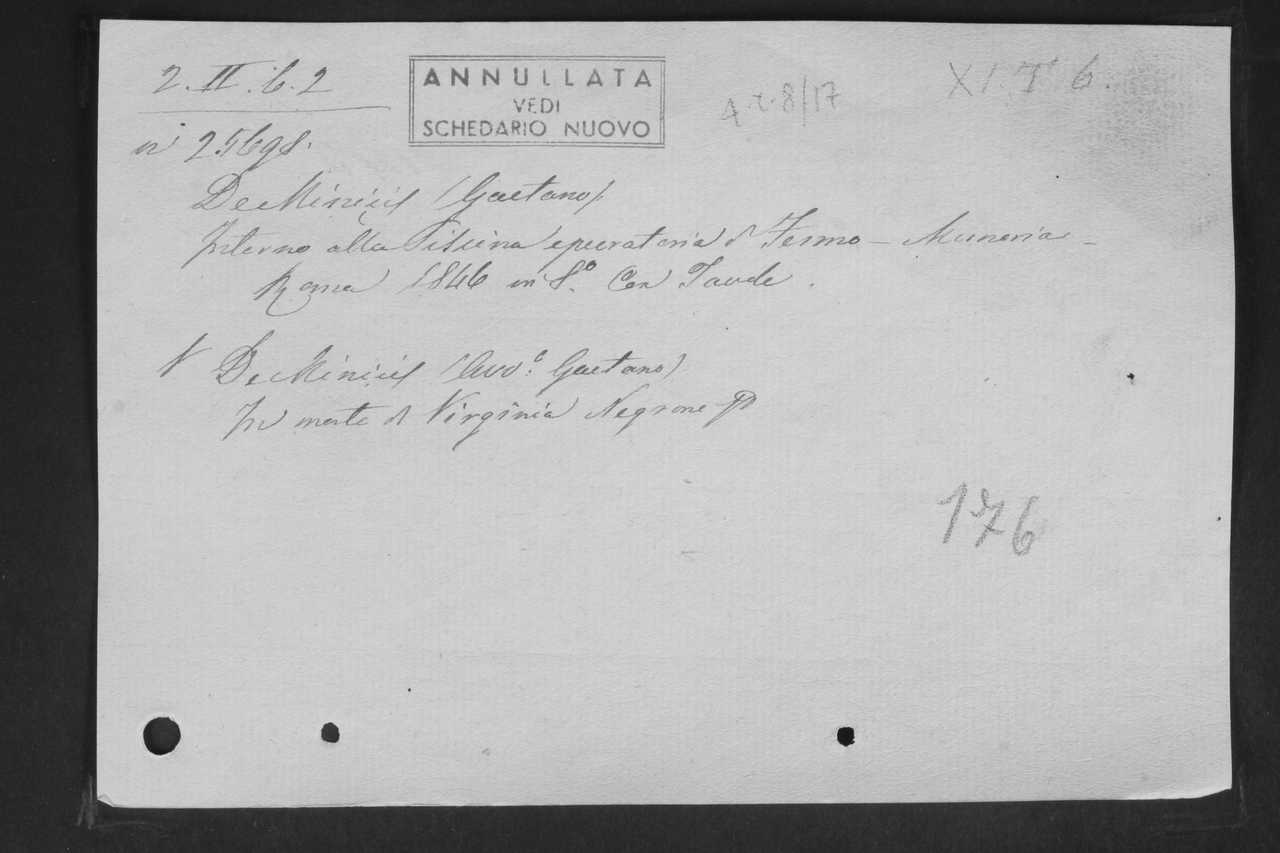 2. II. 6. 2
ANNULLATA
VEDI
SCHEDARIO NUOVO
A.2.8/17
XI. T. 6.
n° 25698.
De Minicis (Gaetano)
Intorno alla Piscina epuratoria di Fermo — Memoria —
Roma 1846 in 8.° Con Tavole.
De Minicis (Avv.° Gaetano)
In morte di Virginia Negrone
176